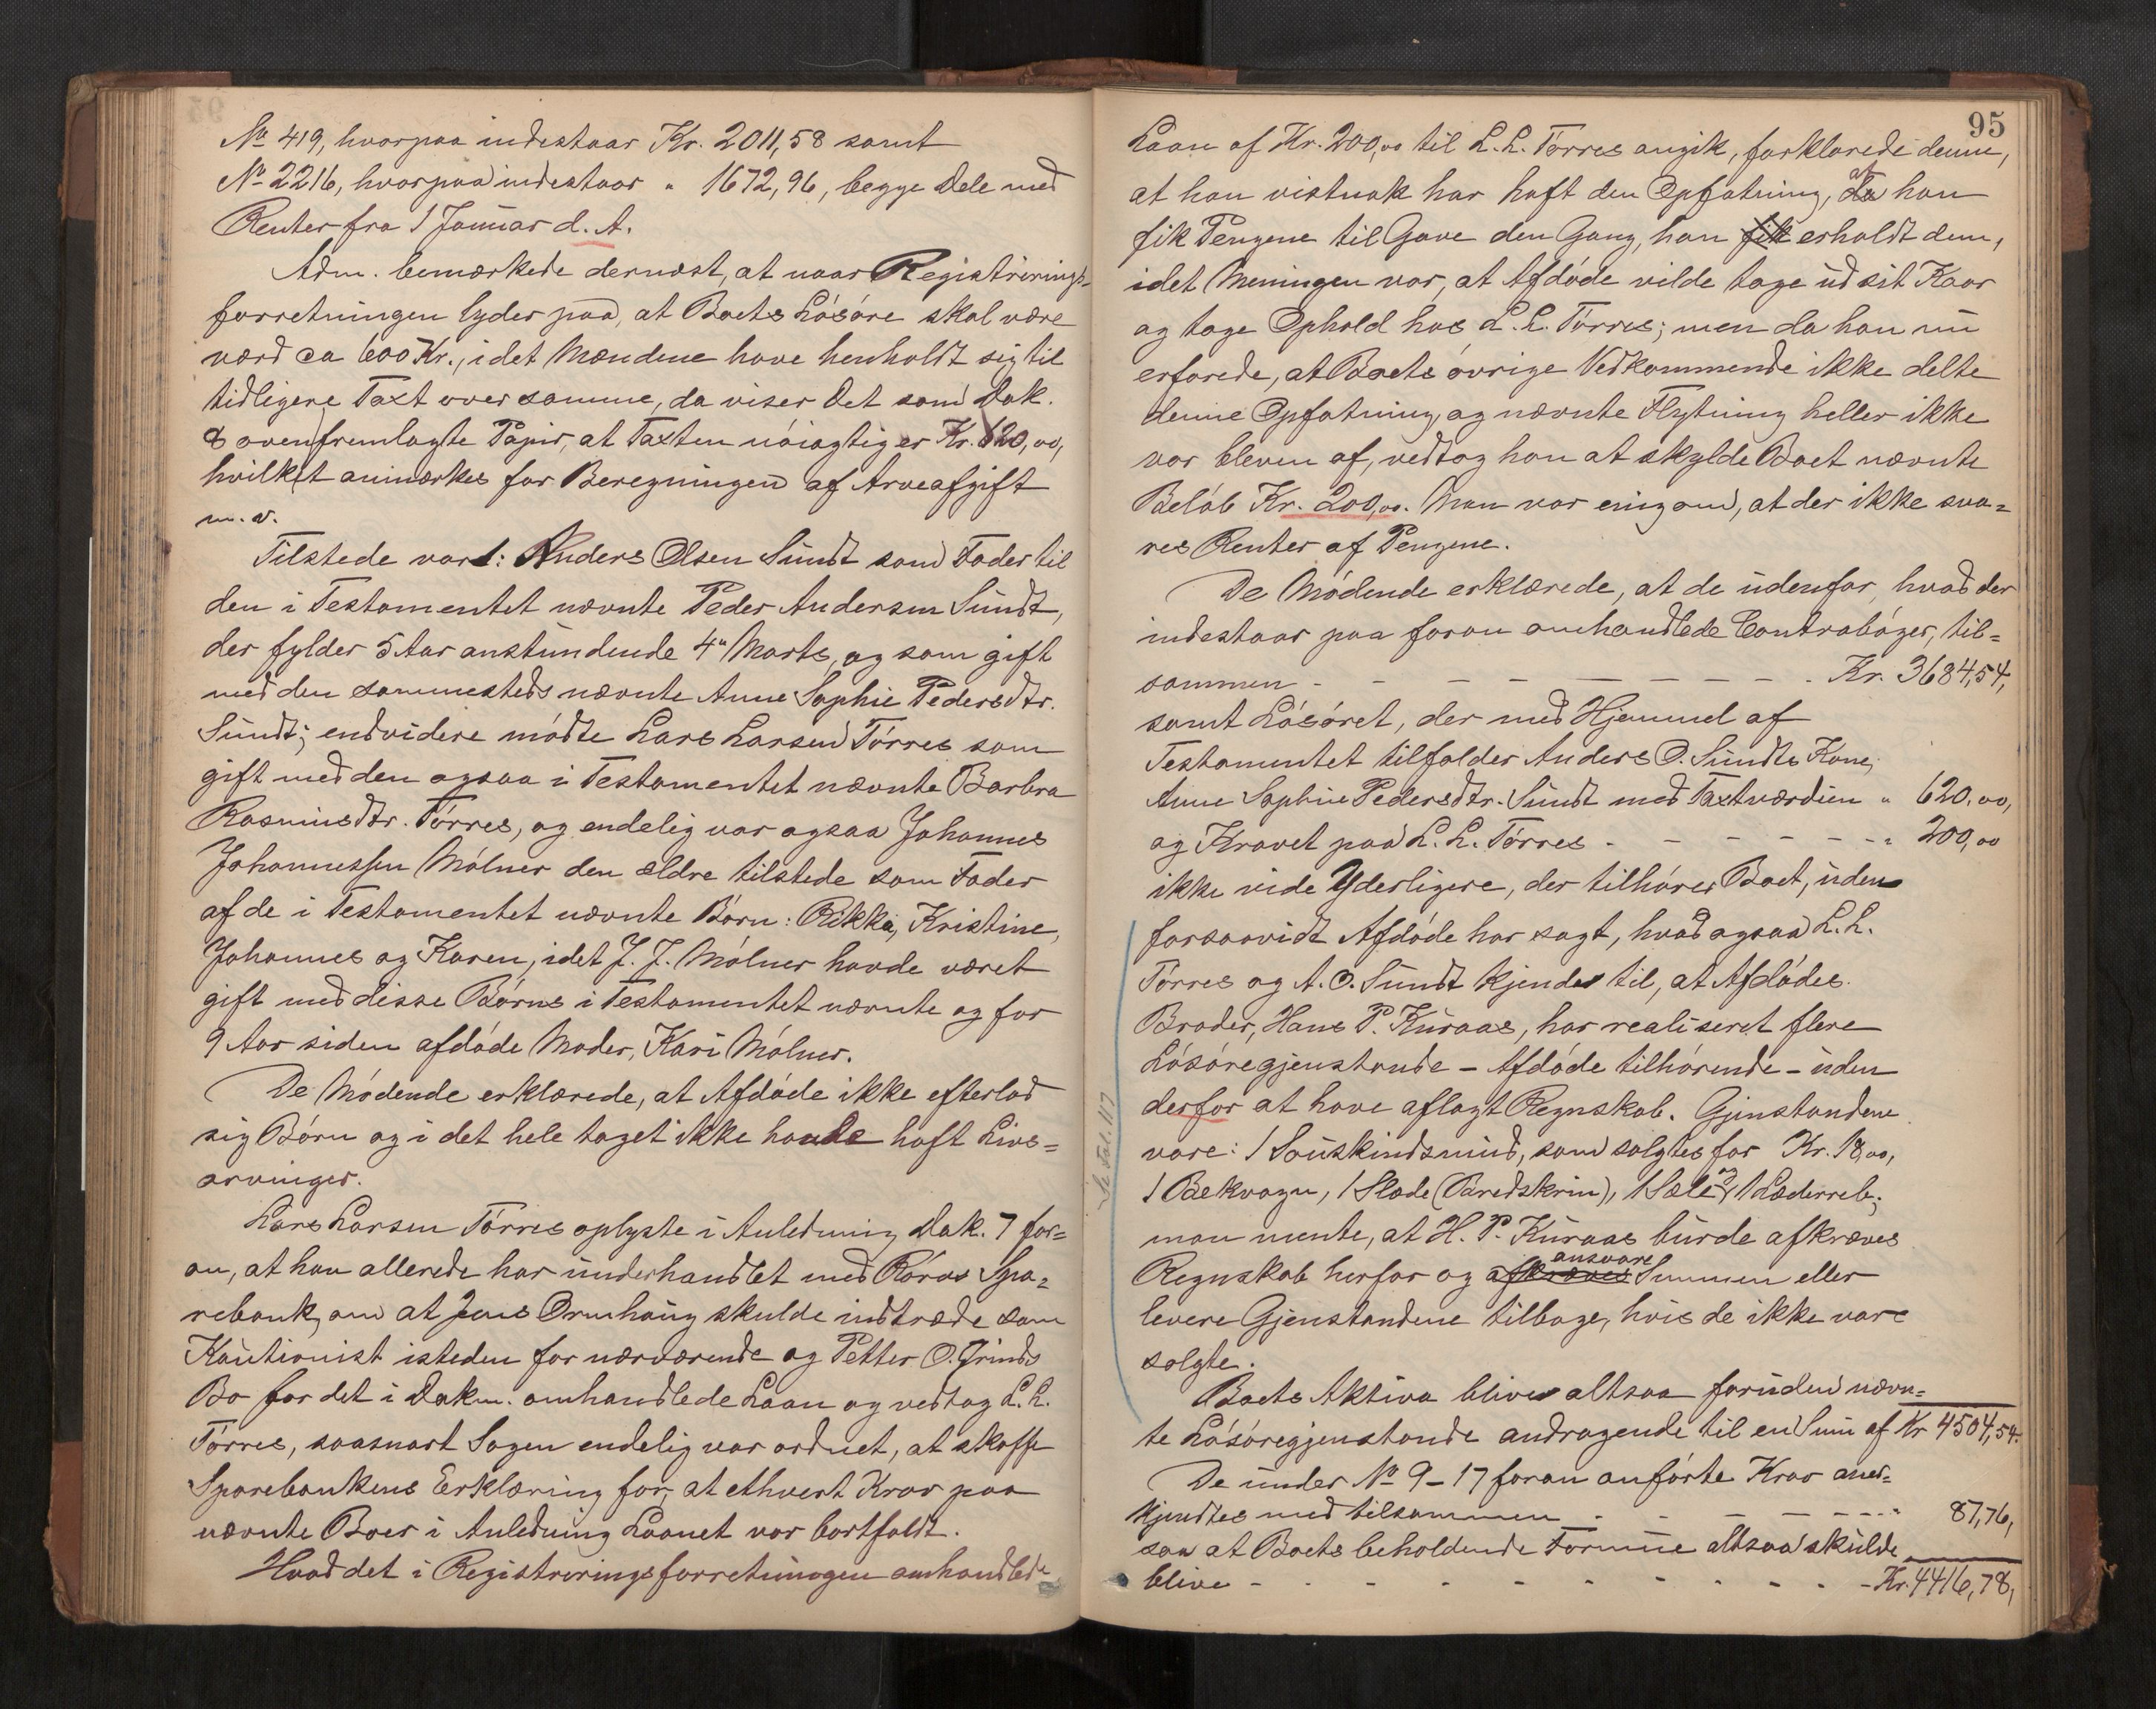 No 419, hvorpaa indestaar Kr. 2011,58 samt
No 2216, hvorpaa indestaar " 1672,96, begge Dele med
Renter fra 1 Januar d. A.
Adm. bemærkede dernæst, at naar Registrerings-
forretningen lyder paa, at Boets Løsøre skal være
værd ca 600 Kr., idet Mændene have henholdt sig til
tidligere Taxt over samme, da viser det som Dok.
8 oven fremlagte Papir, at Taxten nøiagtig er Kr. 620,00,
hvilket anmærkes for Beregningen af Arveafgift
m. v.
Tilstede var 1: Anders Olsen Sundt som Fader til
den i Testamentet nævnte Peder Andersen Sundt,
der fylder 5 Aar anstundende 4de Marts, og som gift
med den sammesteds nævnte Anne Sophie Pedersdtr.
Sundt; endvidere mødte Lars Larsen Tørres som
gift med den ogsaa i Testamentet nævnte Barbra
Rasmusdtr. Tørres, og endelig var ogsaa Johannes
Johannessen Mølner den ældre tilstede som Fader
af de i Testamentet nævnte Børn: Rikka, Kristine,
Johannes og Karen, idet J. J. Mølner havde været
gift med disse Børns i Testamentet nævnte og for
9 Aar siden afdøde Moder, Kari Mølner.
De Mødende erklærede, at Afdøde ikke efterlod
sig Børn og i det hele taget ikke havde haft Livs=
arvinger.
Lars Larsen Tørres oplyste i Anledning Dok. 7 for=
an, at han allerede har underhandlet med Røros Spa=
rebank, om at Jens Ormhaug skulde indtræde som
Kautionist isteden for nærværende og Petter O. Grinds
Bo for det i Dokm. omhandlede Laan og vedtog L. L.
Tørres, saasnart Sagen endelig var ordnet, at skaffe
Sparebankens Erklæring for, at ethvert Krav paa
nævnte Boer i Anledning Laanet var bortfaldt.
Hvad det i Registreringsforretningen omhandlede
95
Laan af Kr. 200,00 til L. L. Tørres angik, forklarede denne,
at han vistnok har haft den Opfatning, da at han
fik Pengene til Gave den Gang, han fik erholdt dem,
idet Meningen var, at Afdøde vilde tage ud sit Kaar
og tage Ophold hos L. L. Tørres; men da han nu
erfarede, at Boets øvrige Vedkommende ikke delte
denne Opfatning, og nævnte Flytning heller ikke
var bleven af, vedtog han at skylde Boet nævnte
Beløb Kr. 200,00. Man var enig om, at der ikke sva=
res Renter af Pengene.
De Mødende erklærede, at de udenfor, hvad der
indestaar paa foran omhandlede Contrabøger, til=
sammen - - - - - - - - - Kr. 3684,54,
samt Løsøret, der med Hjemmel af
Testamentet tilfalder Anders O. Sundts Kone,
Anne Sophie Pedersdtr. Sundt med Taxtværdien " 620,00,
og Kravet paa L. L. Tørres - - - - - - " 200,00
ikke vide Yderligere, der tilhører Boet, uden
forsaavidt Afdøde har sagt, hvad ogsaa L. L.
Tørres og A. O. Sundt kjender til, at Afdødes
Broder, Hans P. Kuraas, har realiseret flere
Løsøregjenstande - Afdøde tilhørende - uden
derfor at have aflagt Regnskab. Gjenstandene
vare: 1 Sauskindsmud, som solgtes for Kr. 18,00,
1 Bækvogn, 1 Slæde (Bredskrin), 1 Sæle og 1 Læderreb;
man mente, at H. P. Kuraas burde afkræves
Regnskab herfor og afkræves ansvare Summen eller
levere Gjenstandene tilbage, hvis de ikke vare
solgte.
Se Fol. 117
Boets Aktiva bliver altsaa foruden nævn=
te Løsøregjenstande andragende til en Sum af Kr 4504,54.
De under No 9-17 foran anførte Krav aner=
kjendtes med tilsammen - - - - - - " 87,76,
saa at Boets beholdende Formue altsaa skulde
blive - - - - - - - - - - - Kr. 4416,78,